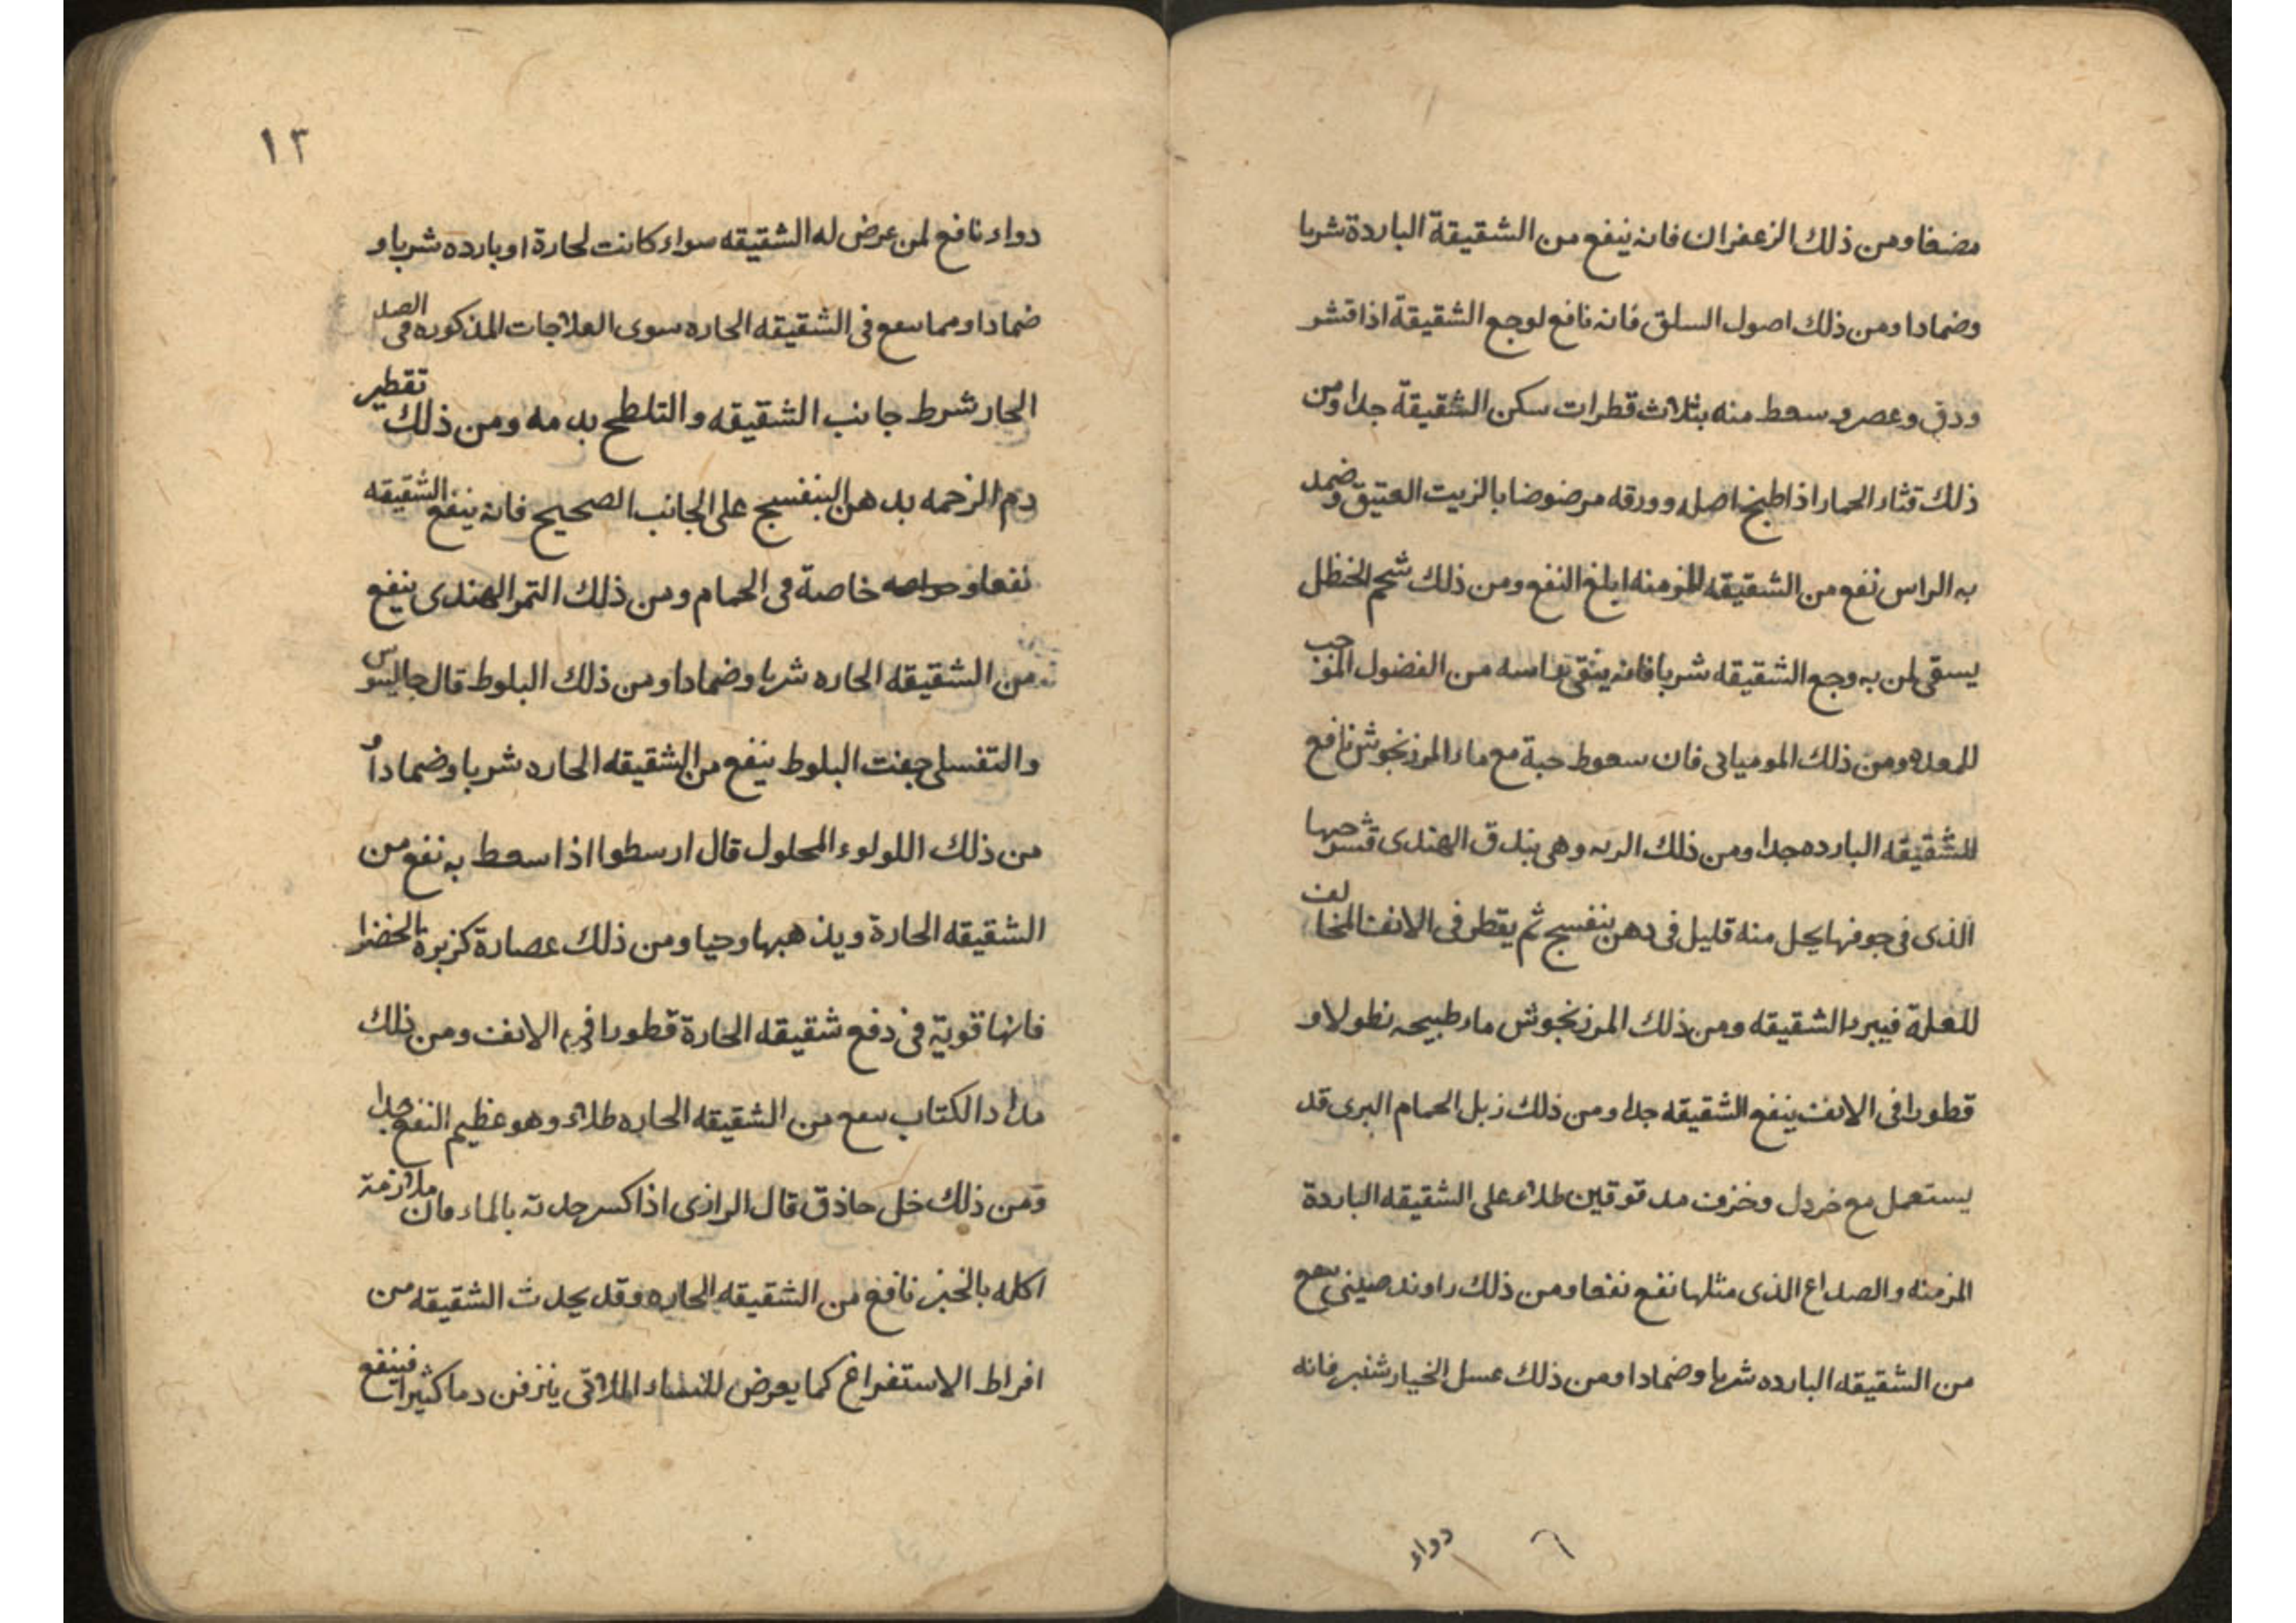 مضغا ومن ذلك الزعفران فانه ينفع من الشقيقة الباردة شربا
وضمادا ومن ذلك اصول السلق فانه نافع لوجع الشقيقة اذا قشر
ودق وعصر وسعط منه بثلاث قطرات سكن الشقيقة جدا ومن
ذلك قثاء الحمار اذا طبخ اصله وورقه مرضوضا بالزيت العتيق وضمد
به الراس نفع من الشقيقه المزمنه ابلغ النفع ومن ذلك شحم الحنظل
يسقى لمن به وجع الشقيقه شربا فانه ينقى راسه من الفضول الموجب
للمعده ومن ذلك الموميائى فان سعوط حبة مع ماء المرزنجوش نافع
للشقيقه البارده جدا ومن ذلك الرته وهى بندق الهندى قشر حبها
الذى فى جوفها يحل منه قليل فى دهن بنفسج ثم يقطر فى الانف المخالف
للعلة فيبرء الشقيقه ومن ذلك المرزنجوش ماء طبيخه نطولا و
قطورا فى الانف ينفع الشقيقه جدا ومن ذلك زبل الحمام البرى قد
يستعمل مع خردل وخزف مدقوقين طلاء على الشقيقه الباردة
المزمنه والصداع الذى مثلها نفع نفعا ومن ذلك راوند صينى ينفع
من الشقيقه البارده شربا وضمادا ومن ذلك عسل الخيارشنبر فانه
دواء
١٣
دواء نافع لمن عرض له الشقيقه سواء كانت لحارة او بارده شربا و
ضمادا ومما ينفع فى الشقيقه الحاره سوى العلاجات المذكوره فى الصد
الحار شرط جانب الشقيقه والتلطح بدمه ومن ذلك تقطير
دم الرخمه بدهن البنفسج على الجانب الصحيح فانه ينفع الشقيقه
نفعا و خاصة فى الحمام ومن ذلك التمر الهندى ينفع
من الشقيقه الحاره شربا وضمادا ومن ذلك البلوط قال جالينوس
والتفسلى جفت البلوط ينفع من الشقيقه الحاره شربا وضمادا و
من ذلك اللولوء المحلول قال ارسطوا اذا سعط به نفع من
الشقيقه الحارة ويذهبها وحيا ومن ذلك عصارة كزبرة الخضرا
فانها قوية فى دفع شقيقه الحارة قطورا فى الانف ومن ذلك
مداد الكتاب ينفع من الشقيقه الحاره طلاء وهو عظيم النفع جدا
ومن ذلك خل حاذق قال الرازى اذا كسر حدته بالماء فان ملازمة
اكله بالخبز نافع من الشقيقه الحاره وقد يحدث الشقيقه من
افراط الاستفراغ كما يعرض للنساء اللاتى ينزفن دما كثيرا فينفع